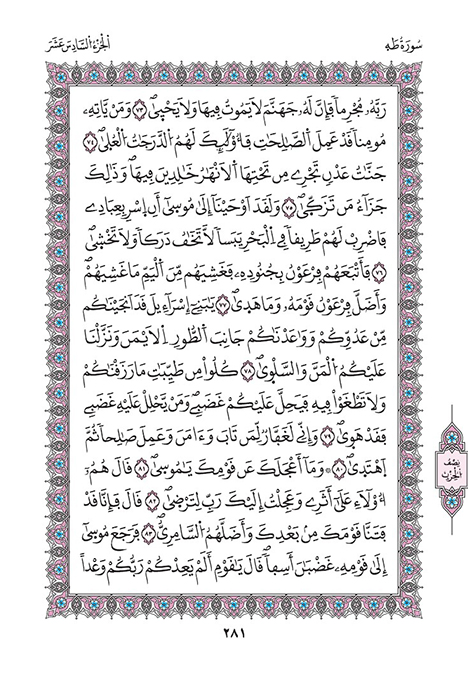 سُورَةُ طَهَ
اَلْجُزْءُ اَلسَّادِسَ عَشَرَ
رَبَّهُۥ مُجْرِماٗ فَإِنَّ لَهُۥ جَهَنَّمَ لَا يَمُوتُ فِيهَا وَلَا يَحْيَىٰۖ ٧٣ وَمَنْ يَّاتِهِۦ
مُومِناٗ قَدْ عَمِلَ اَلصَّٰلِحَٰتِ فَأُوْلَٰٓئِكَ لَهُمُ اُلدَّرَجَٰتُ اُلْعُلَىٰۖ ٧٤
جَنَّٰتُ عَدْنٖ تَجْرِے مِن تَحْتِهَا اَلَانْهَٰرُ خَٰلِدِينَ فِيهَاۖ وَذَٰلِكَ
جَزَآءُ مَن تَزَكَّىٰۖ ٧٥ وَلَقَدَ اَوْحَيْنَآ إِلَىٰ مُوسَىٰٓ أَنِ اِسْرِ بِعِبَادِے
فَاضْرِبْ لَهُمْ طَرِيقاٗ فِے اِلْبَحْرِ يَبَساٗ لَّا تَخَٰفُ دَرَكاٗ وَلَا تَخْشَىٰۖ
٧٦ فَأَتْبَعَهُمْ فِرْعَوْنُ بِجُنُودِهِۦ فَغَشِيَهُم مِّنَ اَلْيَمِّ مَا غَشِيَهُمْۖ
وَأَضَلَّ فِرْعَوْنُ قَوْمَهُۥ وَمَا هَدَىٰۖ ٧٧ يَٰبَنِےٓ إِسْرَآءِيلَ قَدَ اَنجَيْنَٰكُم
مِّنْ عَدُوِّكُمْ وَوَٰعَدْنَٰكُمْ جَانِبَ اَلطُّورِ اِلَايْمَنَ وَنَزَّلْنَا
عَلَيْكُمُ اُلْمَنَّ وَالسَّلْوَىٰۖ ٧٨ كُلُواْ مِن طَيِّبَٰتِ مَا رَزَقْنَٰكُمْ
وَلَا تَطْغَوْاْ فِيهِ فَيَحِلَّ عَلَيْكُمْ غَضَبِےۖ وَمَنْ يَّحْلِلْ عَلَيْهِ غَضَبِے
فَقَدْ هَوَىٰۖ ٧٩ وَإِنِّے لَغَفَّارٞ لِّمَن تَابَ وَءَامَنَ وَعَمِلَ صَٰلِحاٗ ثُمَّ
اَهْتَدَىٰۖ ٨٠ وَمَآ أَعْجَلَكَ عَن قَوْمِكَ يَٰمُوسَىٰۖ ٨١ قَالَ هُمُۥٓ
أُوْلَآءِ عَلَىٰٓ أَثَرِے وَعَجِلْتُ إِلَيْكَ رَبِّ لِتَرْضَىٰۖ ٨٢ قَالَ فَإِنَّا قَدْ
فَتَنَّا قَوْمَكَ مِنۢ بَعْدِكَ وَأَضَلَّهُمُ اُلسَّامِرِيُّۖ ٨٣ فَرَجَعَ مُوسَىٰٓ
إِلَىٰ قَوْمِهِۦ غَضْبَٰنَ أَسِفاٗۖ قَالَ يَٰقَوْمِ أَلَمْ يَعِدْكُمْ رَبُّكُمْ وَعْداً
نِصْف
الحِزْب
٢٨١